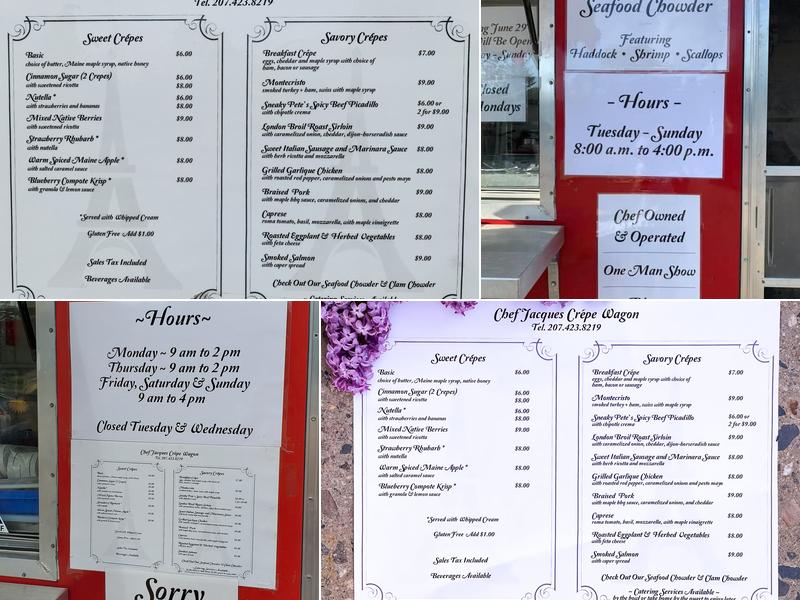 Tel. 207.423.8219
Sweet Crêpes
Basic $6.00
choice of butter, Maine maple syrup, native honey
Cinnamon Sugar (2 Crepes) $6.00
with sweetened ricotta $8.00
Nutella * $6.00
with strawberries and bananas $8.00
Mixed Native Berries $9.00
with sweetened ricotta
Strawberry Rhubarb * $8.00
with nutella
Warm Spiced Maine Apple * $8.00
with salted caramel sauce
Blueberry Compote Krisp * $8.00
with granola & lemon sauce
*Served with Whipped Cream
Gluten Free Add $1.00
Sales Tax Included
Beverages Available
Savory Crêpes
Breakfast Crêpe $7.00
eggs, cheddar and maple syrup with choice of
ham, bacon or sausage
Montecristo $9.00
smoked turkey + ham, swiss with maple syrup
Sneaky Pete's Spicy Beef Picadillo $6.00 or
with chipotle crema 2 for $9.00
London Broil Roast Sirloin $9.00
with caramelized onion, cheddar, dijon-horseradish sauce
Sweet Italian Sausage and Marinara Sauce $8.00
with herb ricotta and mozzarella
Grilled Garlique Chicken $8.00
with roasted red pepper, caramelized onions and pesto mayo
Braised Pork $9.00
with maple bbq sauce, caramelized onions, and cheddar
Caprese $8.00
roma tomato, basil, mozzarella, with maple vinaigrette
Roasted Eggplant & Herbed Vegetables $8.00
with feta cheese
Smoked Salmon $9.00
with caper spread
Check Out Our Seafood Chowder & Clam Chowder
~ Catering Services Available ~
ng June 29
Will Be Open
y - Sunday
Closed
Mondays
Seafood Chowder
Featuring
Haddock • Shrimp • Scallops
~ Hours ~
Tuesday ~ Sunday
8:00 a.m. to 4:00 p.m.
Chef Owned
& Operated
One Man Show
~Hours~
Monday ~ 9 am to 2 pm
Thursday ~ 9 am to 2 pm
Friday, Saturday & Sunday
9 am to 4 pm
Closed Tuesday & Wednesday
Chef Jacques Crêpe Wagon
Tel. 207.423.8219
Sweet Crêpes
Savory Crêpes
Sorry
Chef Jacques Crêpe Wagon
Tel. 207.423.8219
Sweet Crêpes
Basic $6.00
choice of butter, Maine maple syrup, native honey
Cinnamon Sugar (2 Crepes) $6.00
with sweetened ricotta $8.00
Nutella * $6.00
with strawberries and bananas $8.00
Mixed Native Berries $9.00
with sweetened ricotta
Strawberry Rhubarb * $8.00
with nutella
Warm Spiced Maine Apple * $8.00
with salted caramel sauce
Blueberry Compote Krisp * $8.00
with granola & lemon sauce
*Served with Whipped Cream
Gluten Free Add $1.00
Sales Tax Included
Beverages Available
Savory Crêpes
Breakfast Crêpe $7.00
eggs, cheddar and maple syrup with choice of
ham, bacon or sausage
Montecristo $9.00
smoked turkey + ham, swiss with maple syrup
Sneaky Pete's Spicy Beef Picadillo $6.00 or
with chipotle crema 2 for $9.00
London Broil Roast Sirloin $9.00
with caramelized onion, cheddar, dijon-horseradish sauce
Sweet Italian Sausage and Marinara Sauce $8.00
with herb ricotta and mozzarella
Grilled Garlique Chicken $8.00
with roasted red pepper, caramelized onions and pesto mayo
Braised Pork $9.00
with maple bbq sauce, caramelized onions, and cheddar
Caprese $8.00
roma tomato, basil, mozzarella, with maple vinaigrette
Roasted Eggplant & Herbed Vegetables $8.00
with feta cheese
Smoked Salmon $9.00
with caper spread
Check Out Our Seafood Chowder & Clam Chowder
~ Catering Services Available ~
by the bowl or take home by the quart to enjoy later